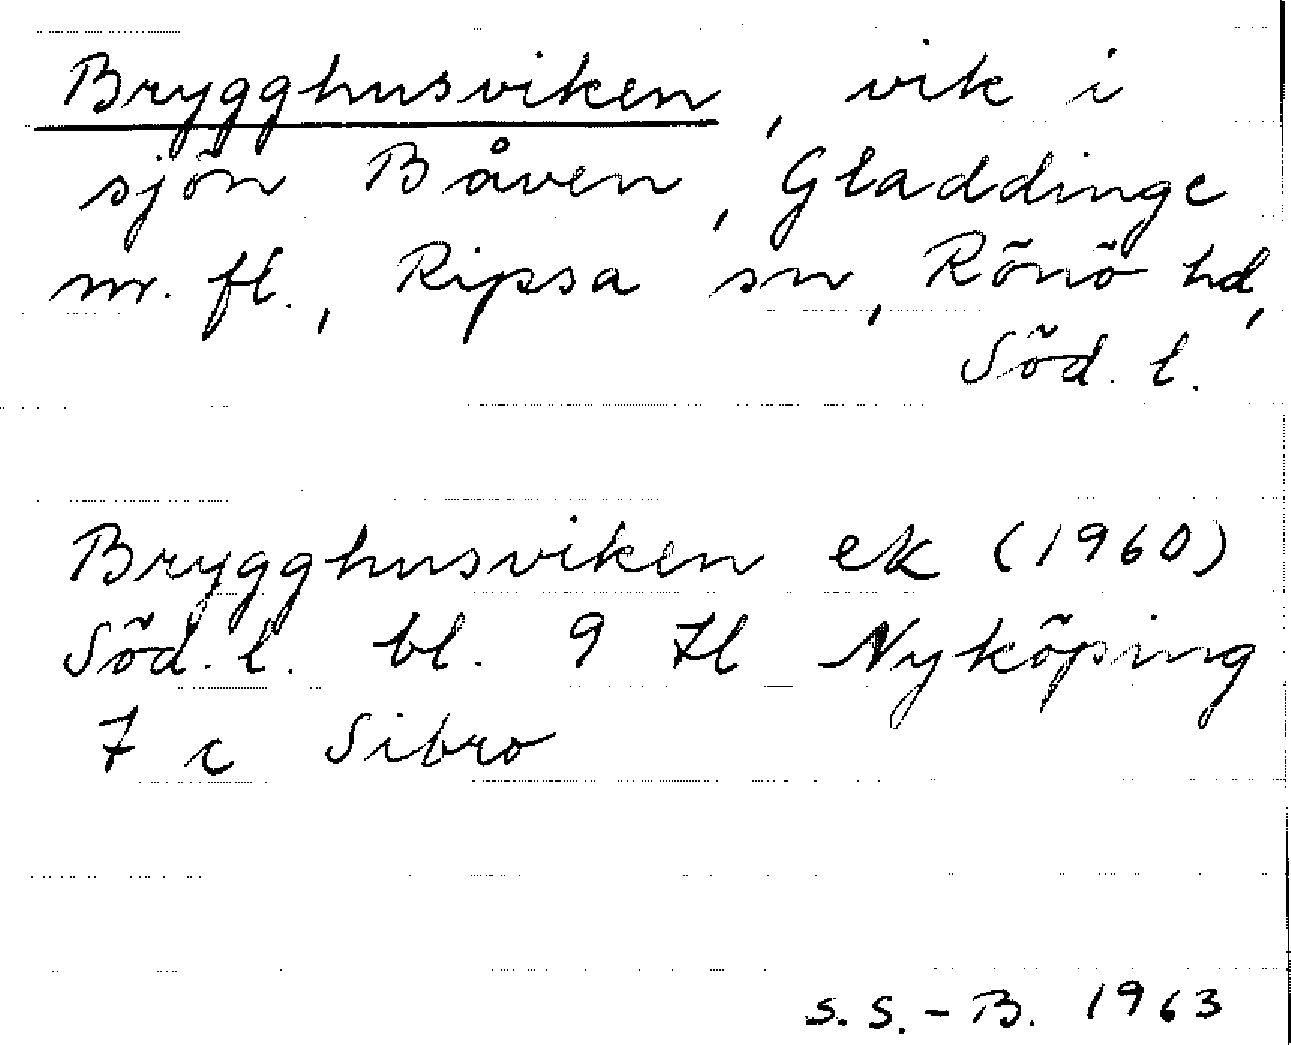 Brygghusviken, vik i
sjön Båven, Gladdinge
m. fl., Ripsa sn, Rönö hd,
Söd. l.
Brygghusviken ek (1960)
Söd. l. bl. 9 H Nyköping
7 c Sibro
S. S.-B. 1963